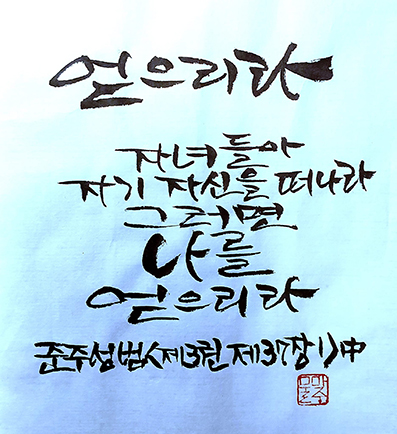 얻으리라
자녀들아
자기 자신을 떠나라
그러면
나를
얻으리라
준주성범<제3권 제37장1>中